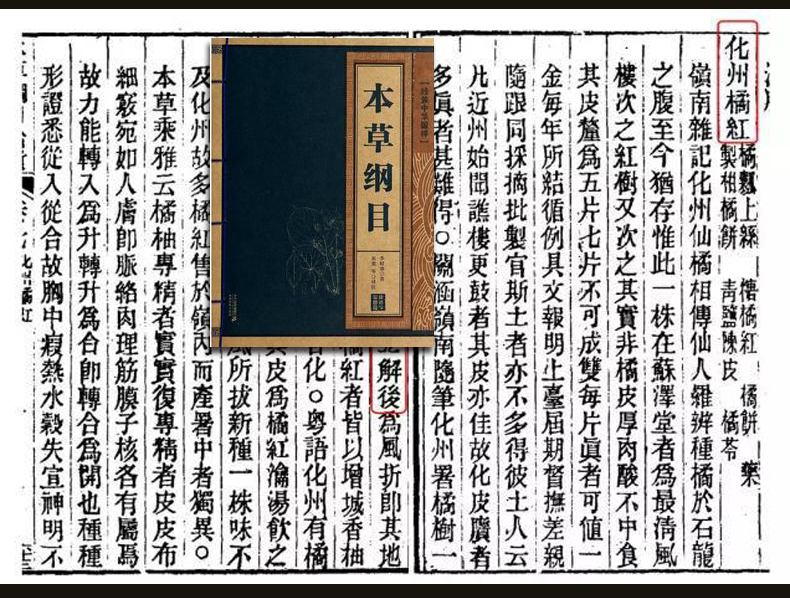 化州橘紅
橘瓤上絲 橘紅 橘餅 藥
製柑橘餅 青鹽陳皮 橘苓
嶺南雜記化州仙橘相傳仙人羅辨種橘於石龍
之腹至今猶存惟此一株在蘇澤堂者爲最淸風
樓次之紅樹又次之其實非橘皮厚肉酸不中食
其皮釐爲五片七片不可成雙每片眞者可値一
金每年所結循例具文報明上臺届期督撫差親
隨跟同採摘批製官斯土者亦不多得彼土人云
凡近州始聞譙樓更鼓者其皮亦佳故化皮贗者
多眞者甚難得○關涵嶺南隨筆化州署橘樹一
解後爲風折卽其地
橘紅者皆以增城香柚
化○粤語化州有橘
皮爲橘紅瀹湯飲之
風所拔新種一株味不
及化州故多橘紅售於嶺內而產署中者獨異○
本草乘雅云橘柚專精者實實復專精者皮皮布
細竅宛如人膚卽脈絡肉理筋膜子核各有屬焉
故力能轉入爲升轉升爲合卽轉合爲開也種種
形證悉從入從合故胸中痰熱水穀失宣神明不
本草纲目